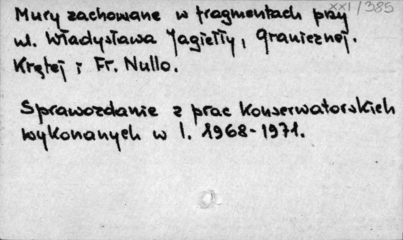 XXI/385
Mury zachowane w fragmentach przy
ul. Władysława Jagiełły, Granicznej.
Krętej i Fr. Nullo.
Sprawozdanie z prac konserwatorskich
wykonanych w l. 1968-1971.